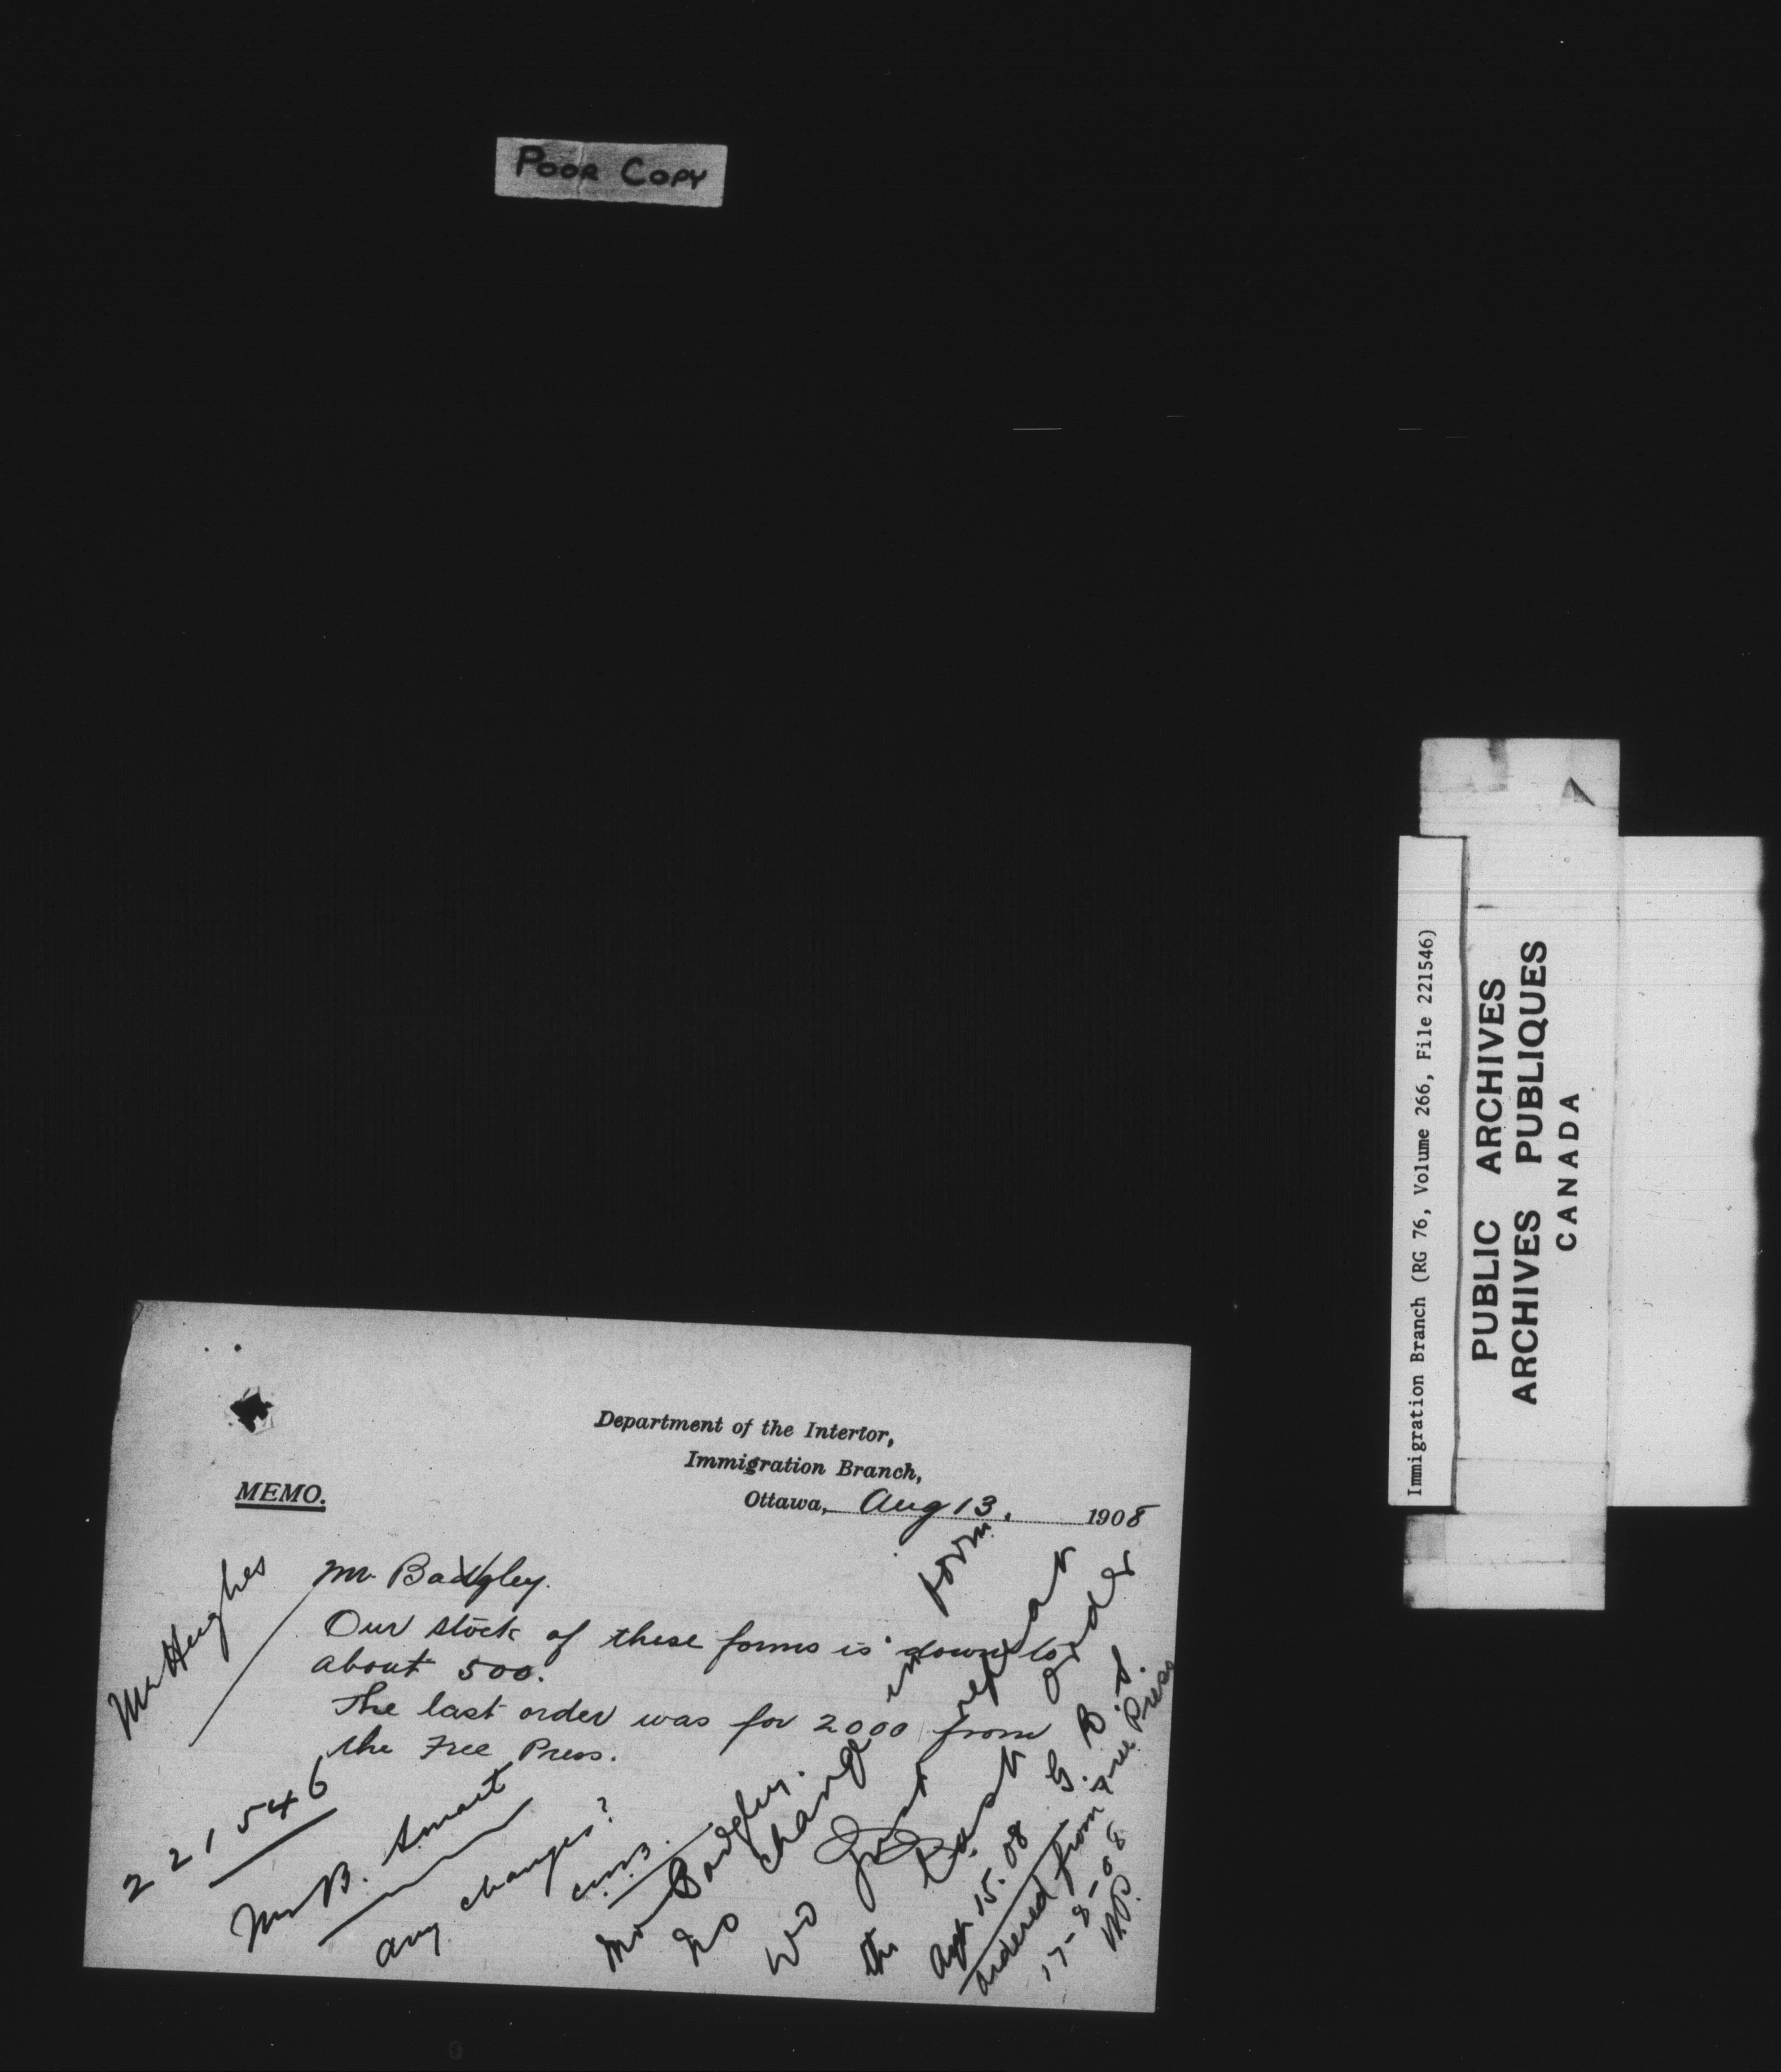 POOR COPY
Department of the Interior,
Immigration Branch,
MEMO.
Ottawa, Aug 13, 1908
Mr Hughes
Mr Badgley.
Our stock of these forms is down to
about 500.
The last order was for 2000 from
the Free Press.
221546
Mr B. Smart
any changes?
Mr Badgley.
no change in form
just repeat
the last order
15.08 G. B. S.
ordered from Free Press
17-8-08
Immigration Branch (RG 76, Volume 266, File 221546)
PUBLIC ARCHIVES
ARCHIVES PUBLIQUES
CANADA